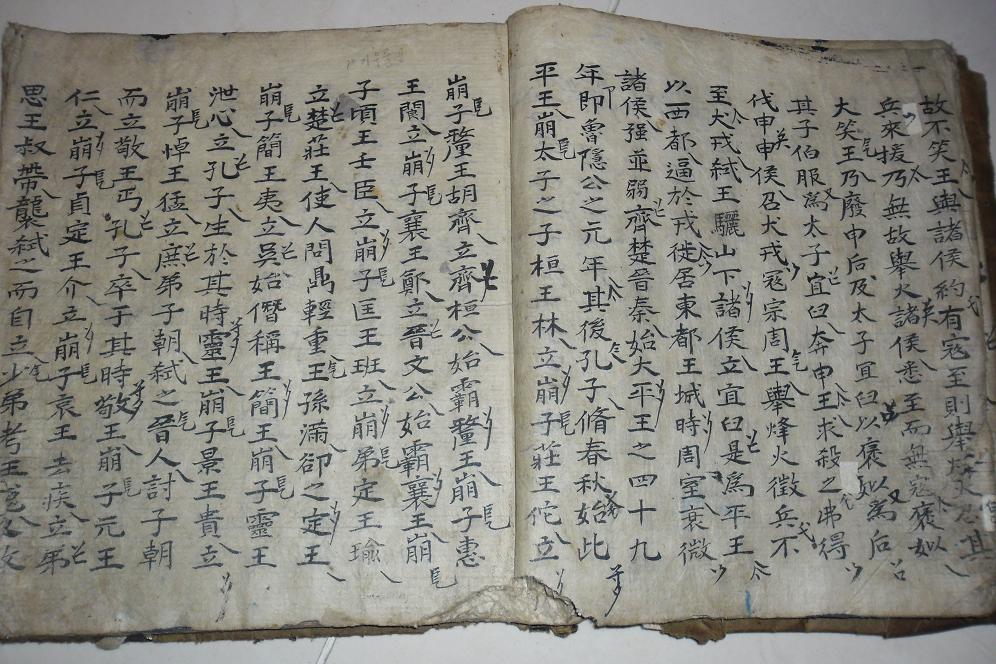 故不笑王與諸侯約有寇至則擧烽火召其
兵來援乃無故擧火諸侯悉至而無寇褒姒
大笑王乃廢申后及太子宜臼以褒姒為后
其子伯服為太子宜臼奔申王求殺之弗得
伐申申侯召犬戎寇宗周王擧烽火徵兵不
至犬戎弑王驪山下諸侯立宜臼是為平王
以西都逼於戎徙居東都王城時周室衰微
諸侯强並弱齊楚晉秦始大平王之四十九
年即魯隱公之元年其後孔子脩春秋始此
平王崩太子之子桓王林立崩子莊王佗立
崩子釐王胡齊立齊桓公始霸釐王崩子惠
王閬立崩子襄王鄭立晉文公始霸襄王崩
子頃王壬臣立崩子匡王班立崩弟定王瑜
立楚莊王使人問鼎輕重王孫滿卻之定王
崩子簡王夷立吳始僭稱王簡王崩子靈王
泄心立孔子生於其時靈王崩子景王貴立
崩子悼王猛立庶弟子朝弑之晉人討子朝
而立敬王丐孔子卒于其時敬王崩子元王
仁立崩子貞定王介立崩子哀王去疾立弟
思王叔帶襲弑之而自立少弟考王嵬又攻